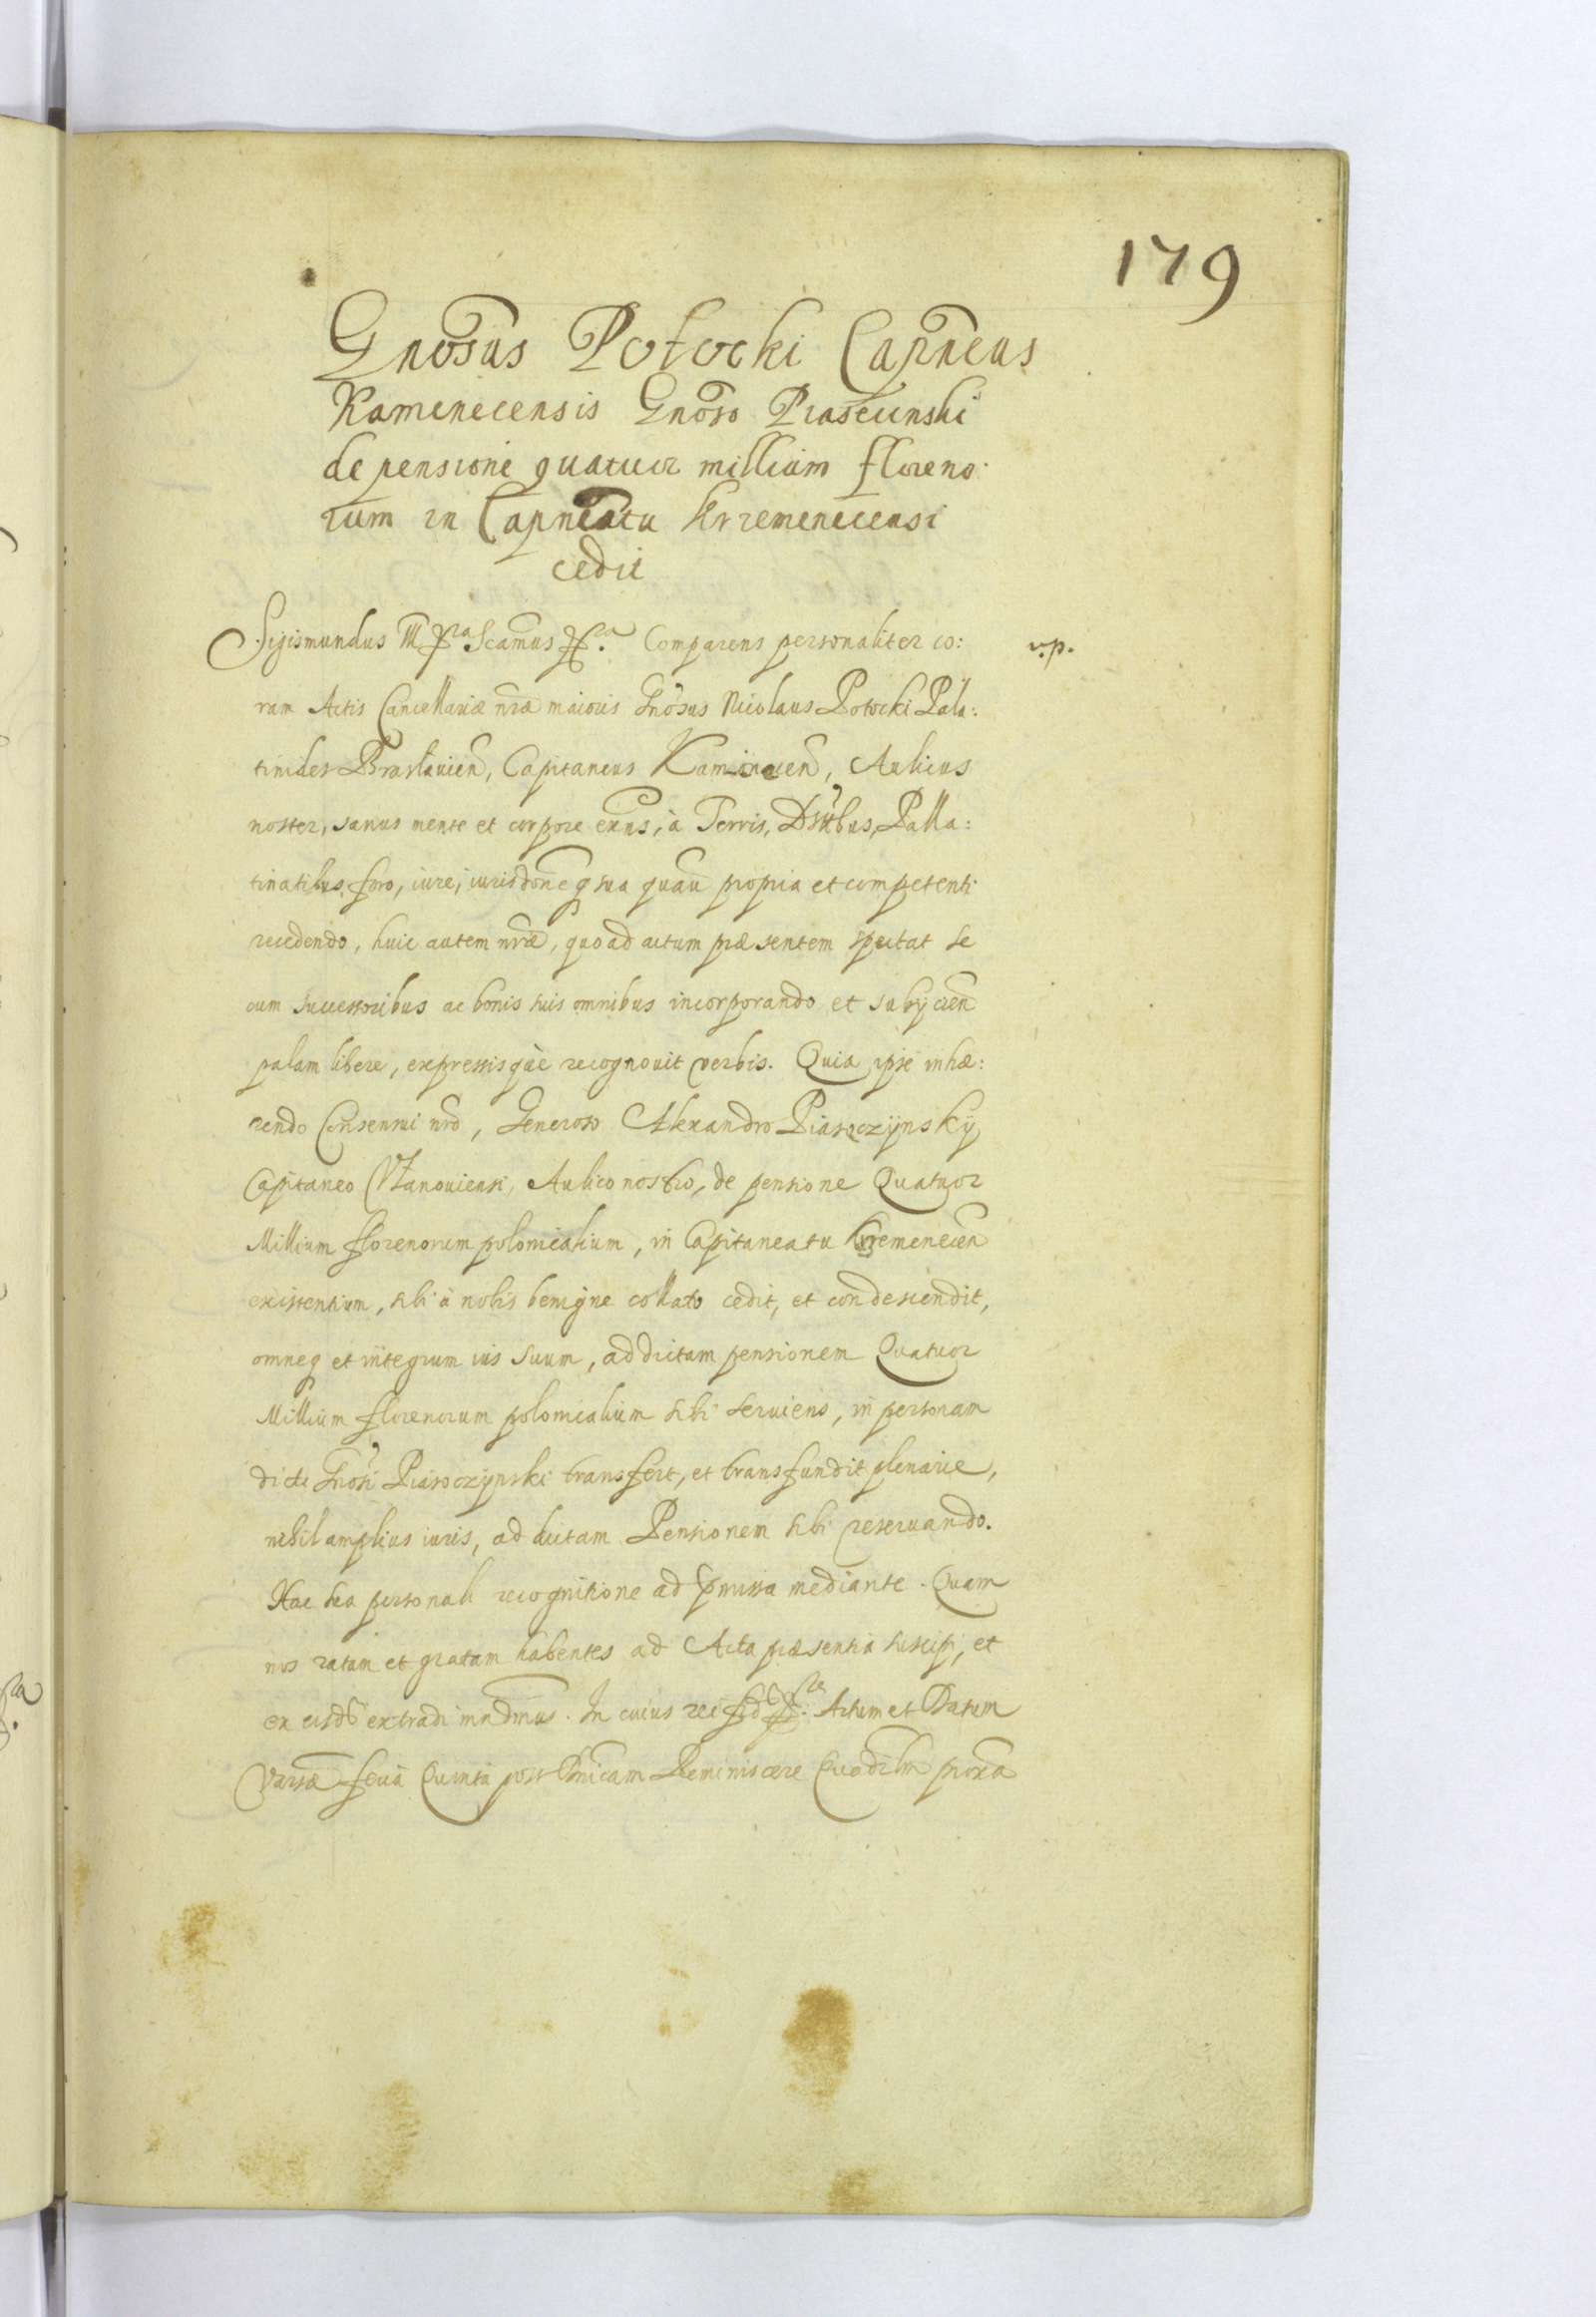 179
Gnosus Potocki Capneus
Kamenecensis Gnoso Piaseczinski
de pensione quatuor millium floreno:
rum in Capneatu Krzemenecensi
cedit
Sigismundus III &ra Scamus &ra. Comparens personaliter co:
v.p.
ram Actis Cancellariæ nræ maioris Gnosus Nicolaus Potocki Pala:
tinides Braslauien, Capitaneus Kamenecen, Aulicus
noster, sanus mente et corpore exns, à Terris, Dstbus, Palla:
tinatibus, foro, iure, iurisdoneq sua quauis propria et competenti
recedendo, huic autem nræ, quo ad actum præsentem spectat se
cum successoribus ac bonis suis omnibus incorporando et subijcien
palam libere, expressisque recognouit verbis. Quia ipse inhæ:
rendo Consensui nro, Generoso Alexandro Piasoczynsky
Capitaneo Vlanouiensi, Aulico nostro, de pensione Quatuor
Millium florenorum polonicalium, in Capitaneatu Kremenecen
existentium, sibi à nobis benigne collato cedit, et condescendit,
omneq et integrum ius suum, ad dictam pensionem Quatuor
Millium florenorum polonicalium sibi seruiens, in personam
dicti Gnosi Piasoczynski transfert, et transfundit plenarie,
nihil amplius iuris, ad dictam Pensionem sibi reseruando.
Hac sua personali recognitione ad pmissa mediante. Quam
nos ratam et gratam habentes ad Acta præsentia suscipi, et
ex eisd extradi mndmus. In cuius rei fid &ra. Actum et Datum
Varsæ feria Quinta post Dnicam Reminiscere Quadrlm proxa